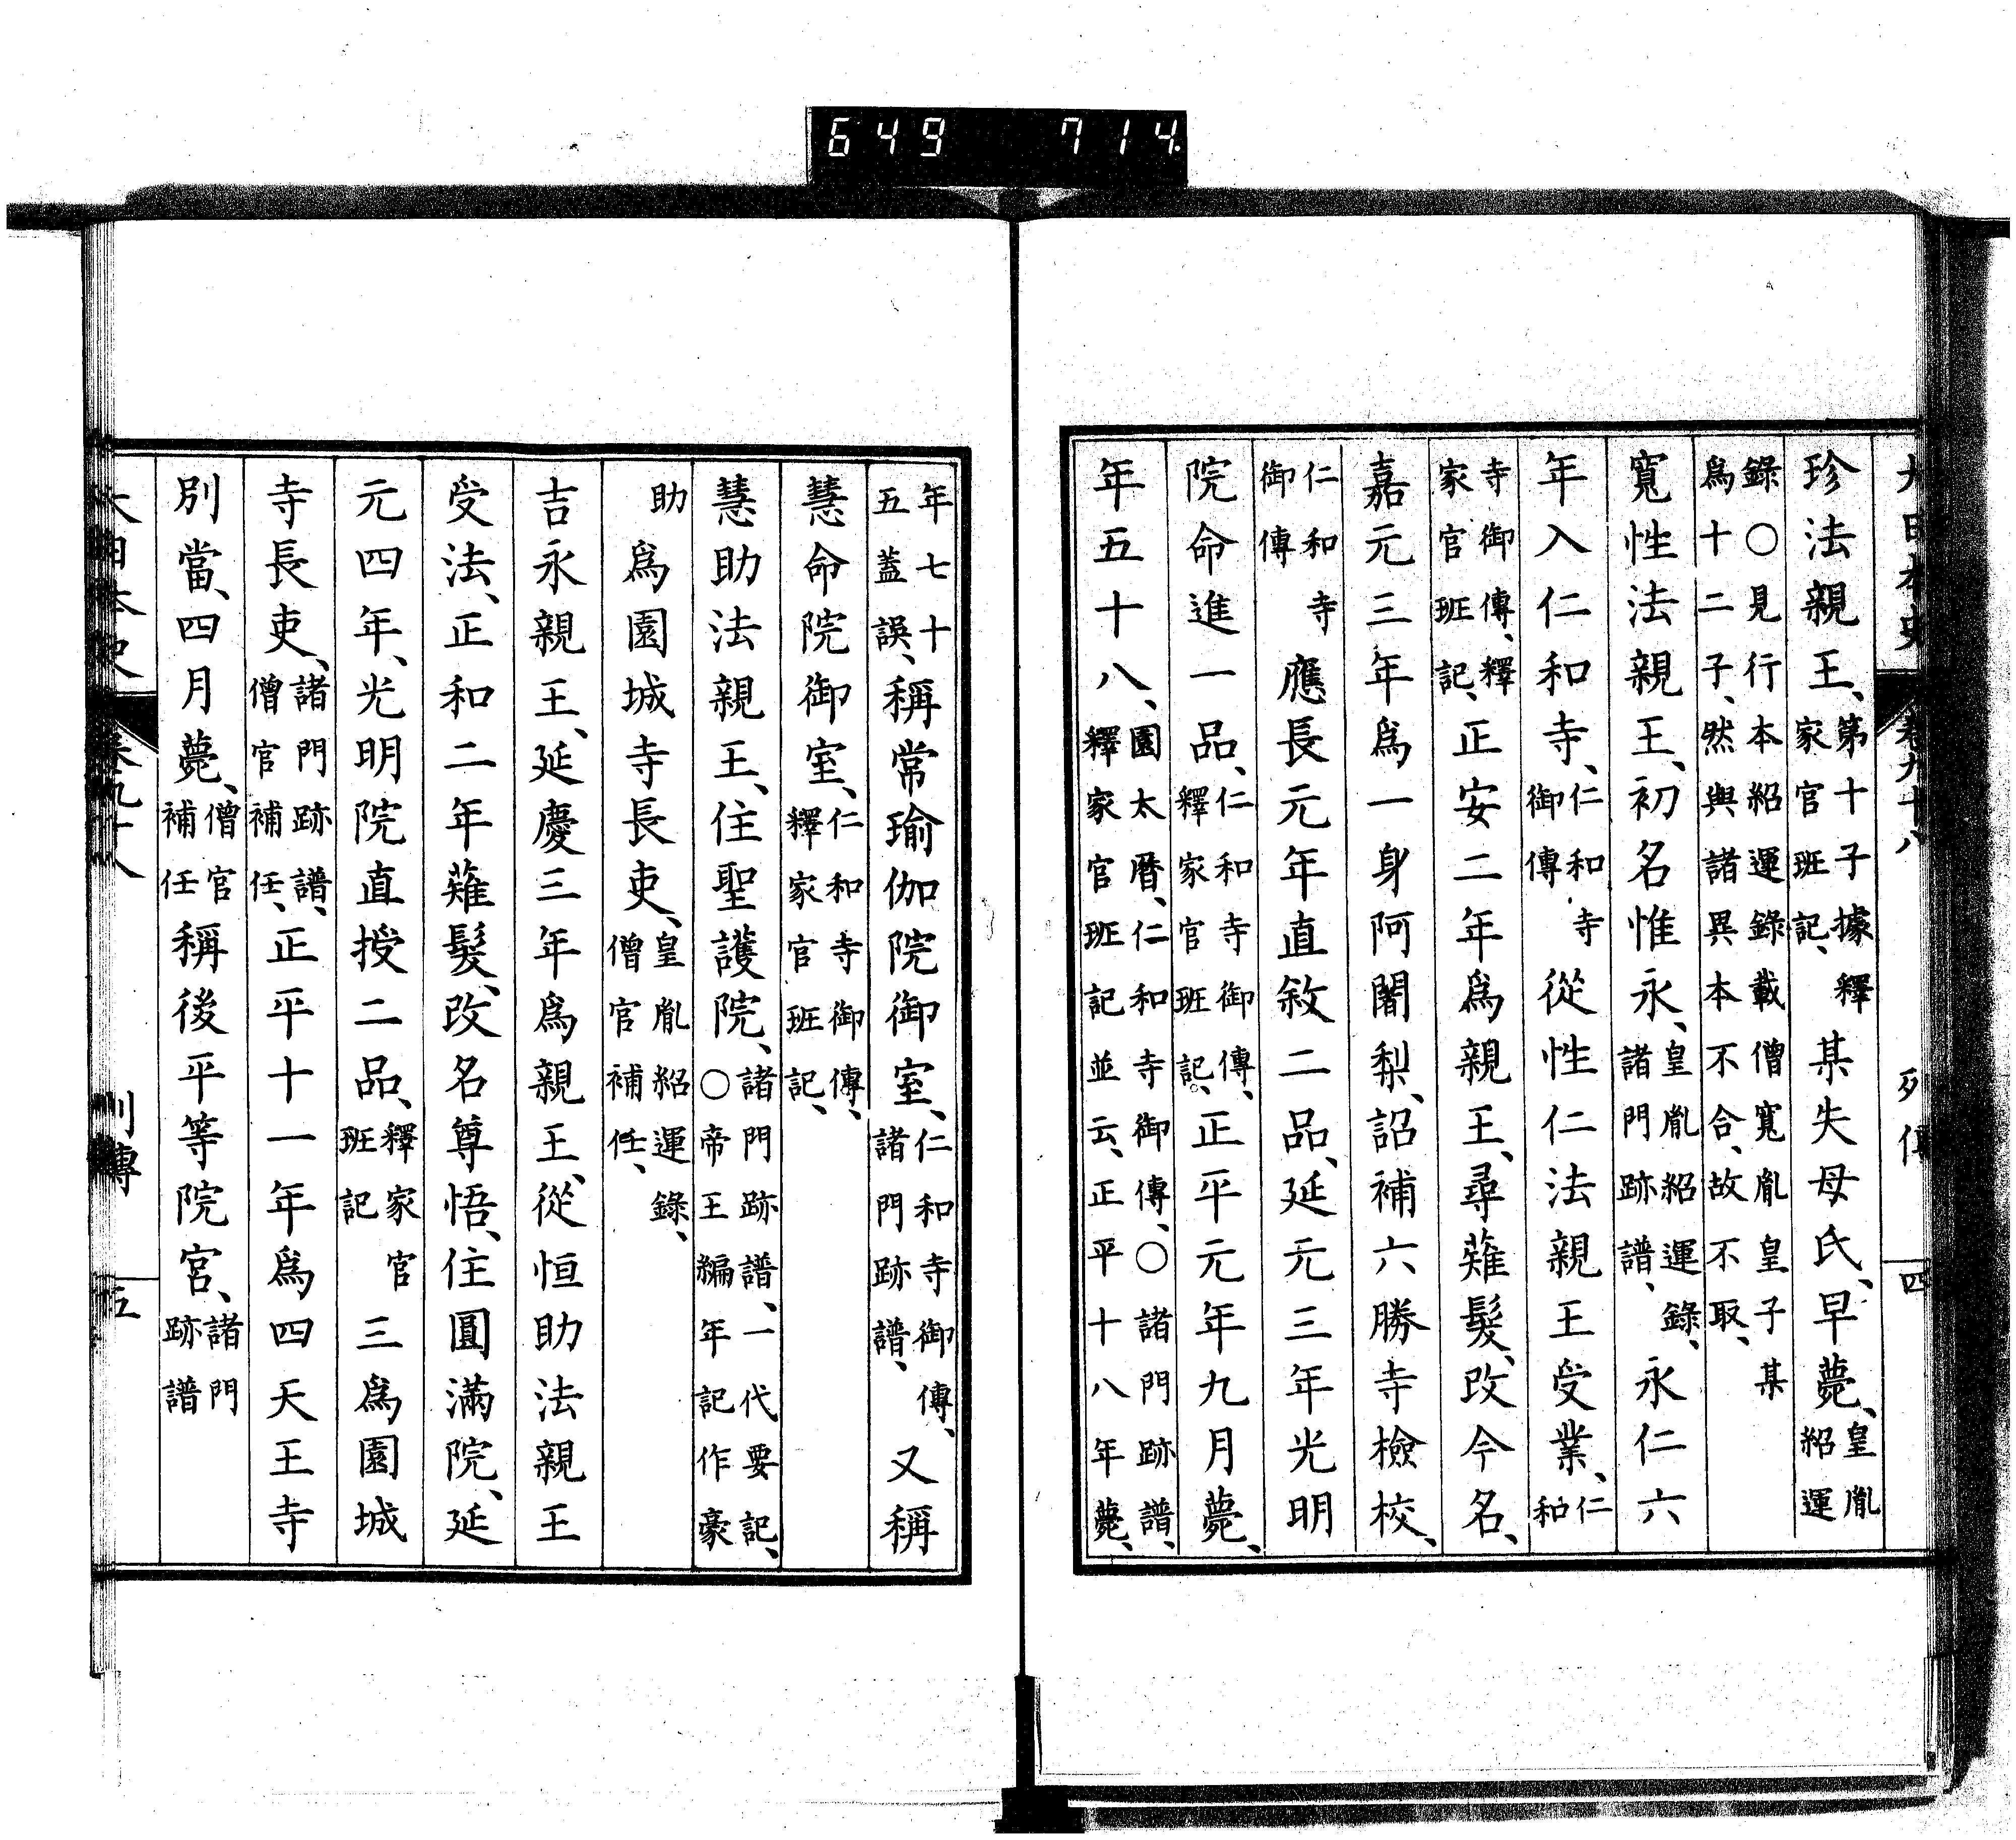 649 714.
大日本史 卷九十八 列傳 四
珍法親王、第十子據釋家官班記、某失母氏、早薨、皇胤紹運
錄〇見行本紹運錄載僧寬胤皇子某爲十二子、然與諸異本不合、故不取、
寬性法親王、初名惟永、皇胤紹運錄、諸門跡譜、永仁六
年入仁和寺、仁和寺御傳從性仁法親王受業、仁和
寺御傳、釋家官班記、正安二年爲親王、尋薙髮、改今名、
嘉元三年爲一身阿闍梨、詔補六勝寺檢校、
仁和寺御傳應長元年直敘二品、延元三年光明
院命進一品、仁和寺御傳、釋家官班記、正平元年九月薨、
年五十八、園太曆、仁和寺御傳、〇諸門跡譜、釋家官班記並云、正平十八年薨、
年七十五蓋誤、稱常瑜伽院御室、仁和寺御傳、諸門跡譜、又稱
慧命院御室、仁和寺御傳、釋家官班記、
慧助法親王、住聖護院、諸門跡譜、一代要記、〇帝王編年記作豪
助爲園城寺長吏、皇胤紹運錄、僧官補任、
吉永親王、延慶三年爲親王、從恒助法親王
受法、正和二年薙髮、改名尊悟、住圓滿院、延
元四年、光明院直授二品、釋家官班記三爲園城
寺長吏、諸門跡譜、僧官補任、正平十一年爲四天王寺
別當、四月薨、僧官補任稱後平等院宮、諸門跡譜
大日本史 卷九十八 列傳 五